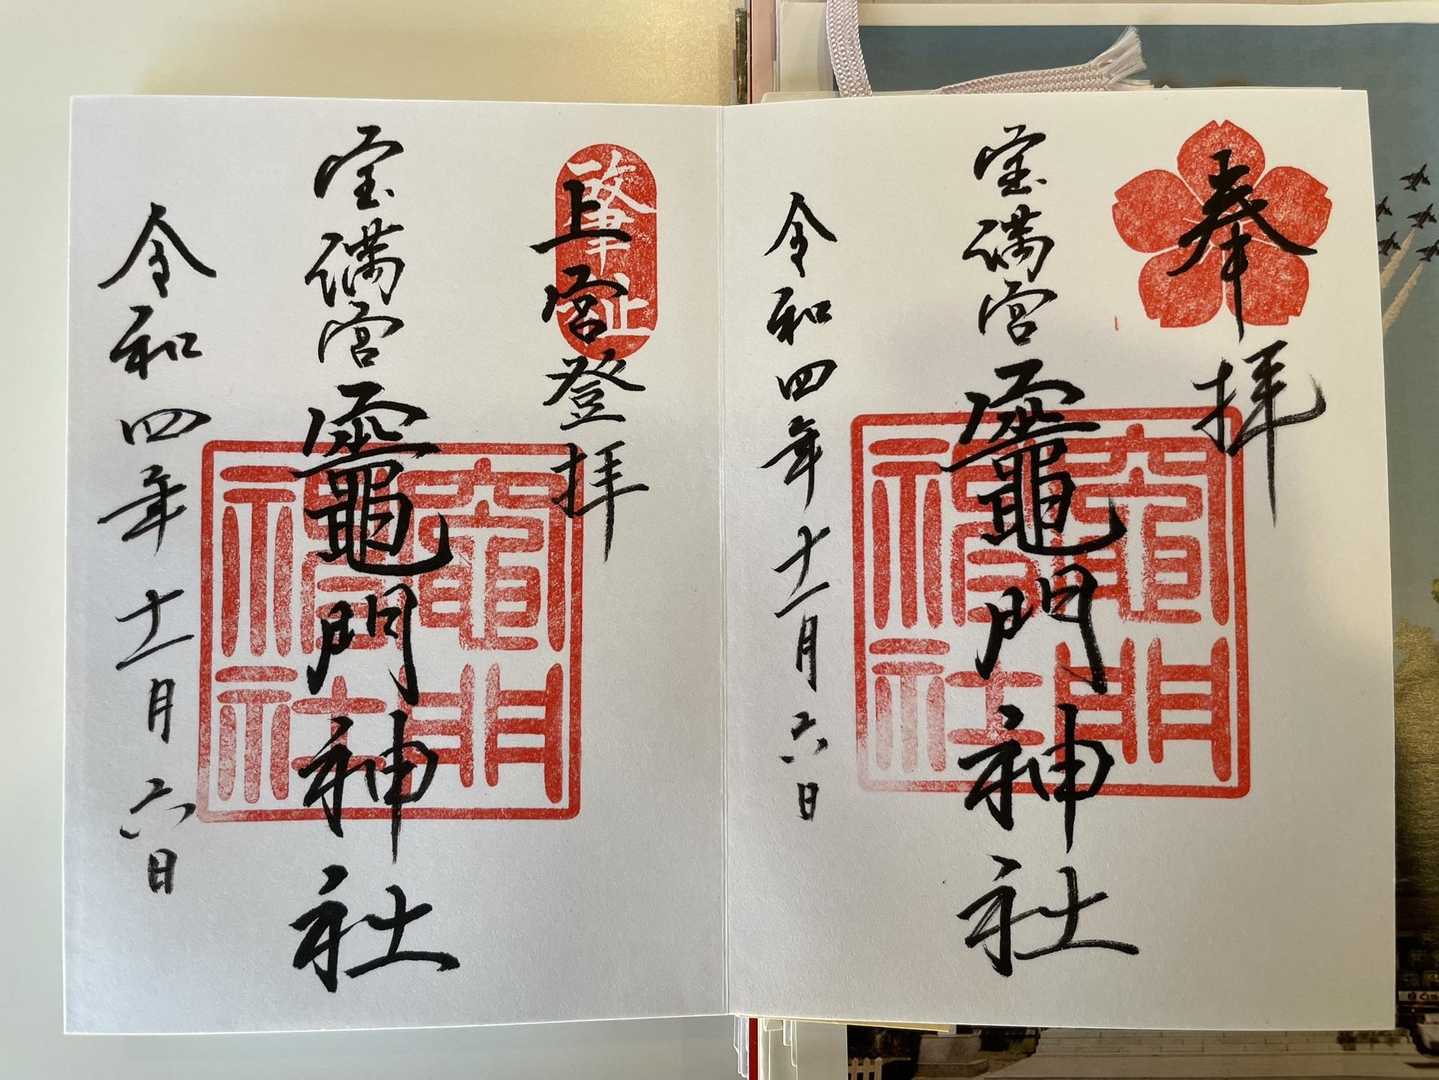 奉拝
宝満宮
竈門神社
竈門神社
令和四年十一月六日
上宮登拝
肇祉
宝満宮
竈門神社
竈門神社
令和四年十一月六日